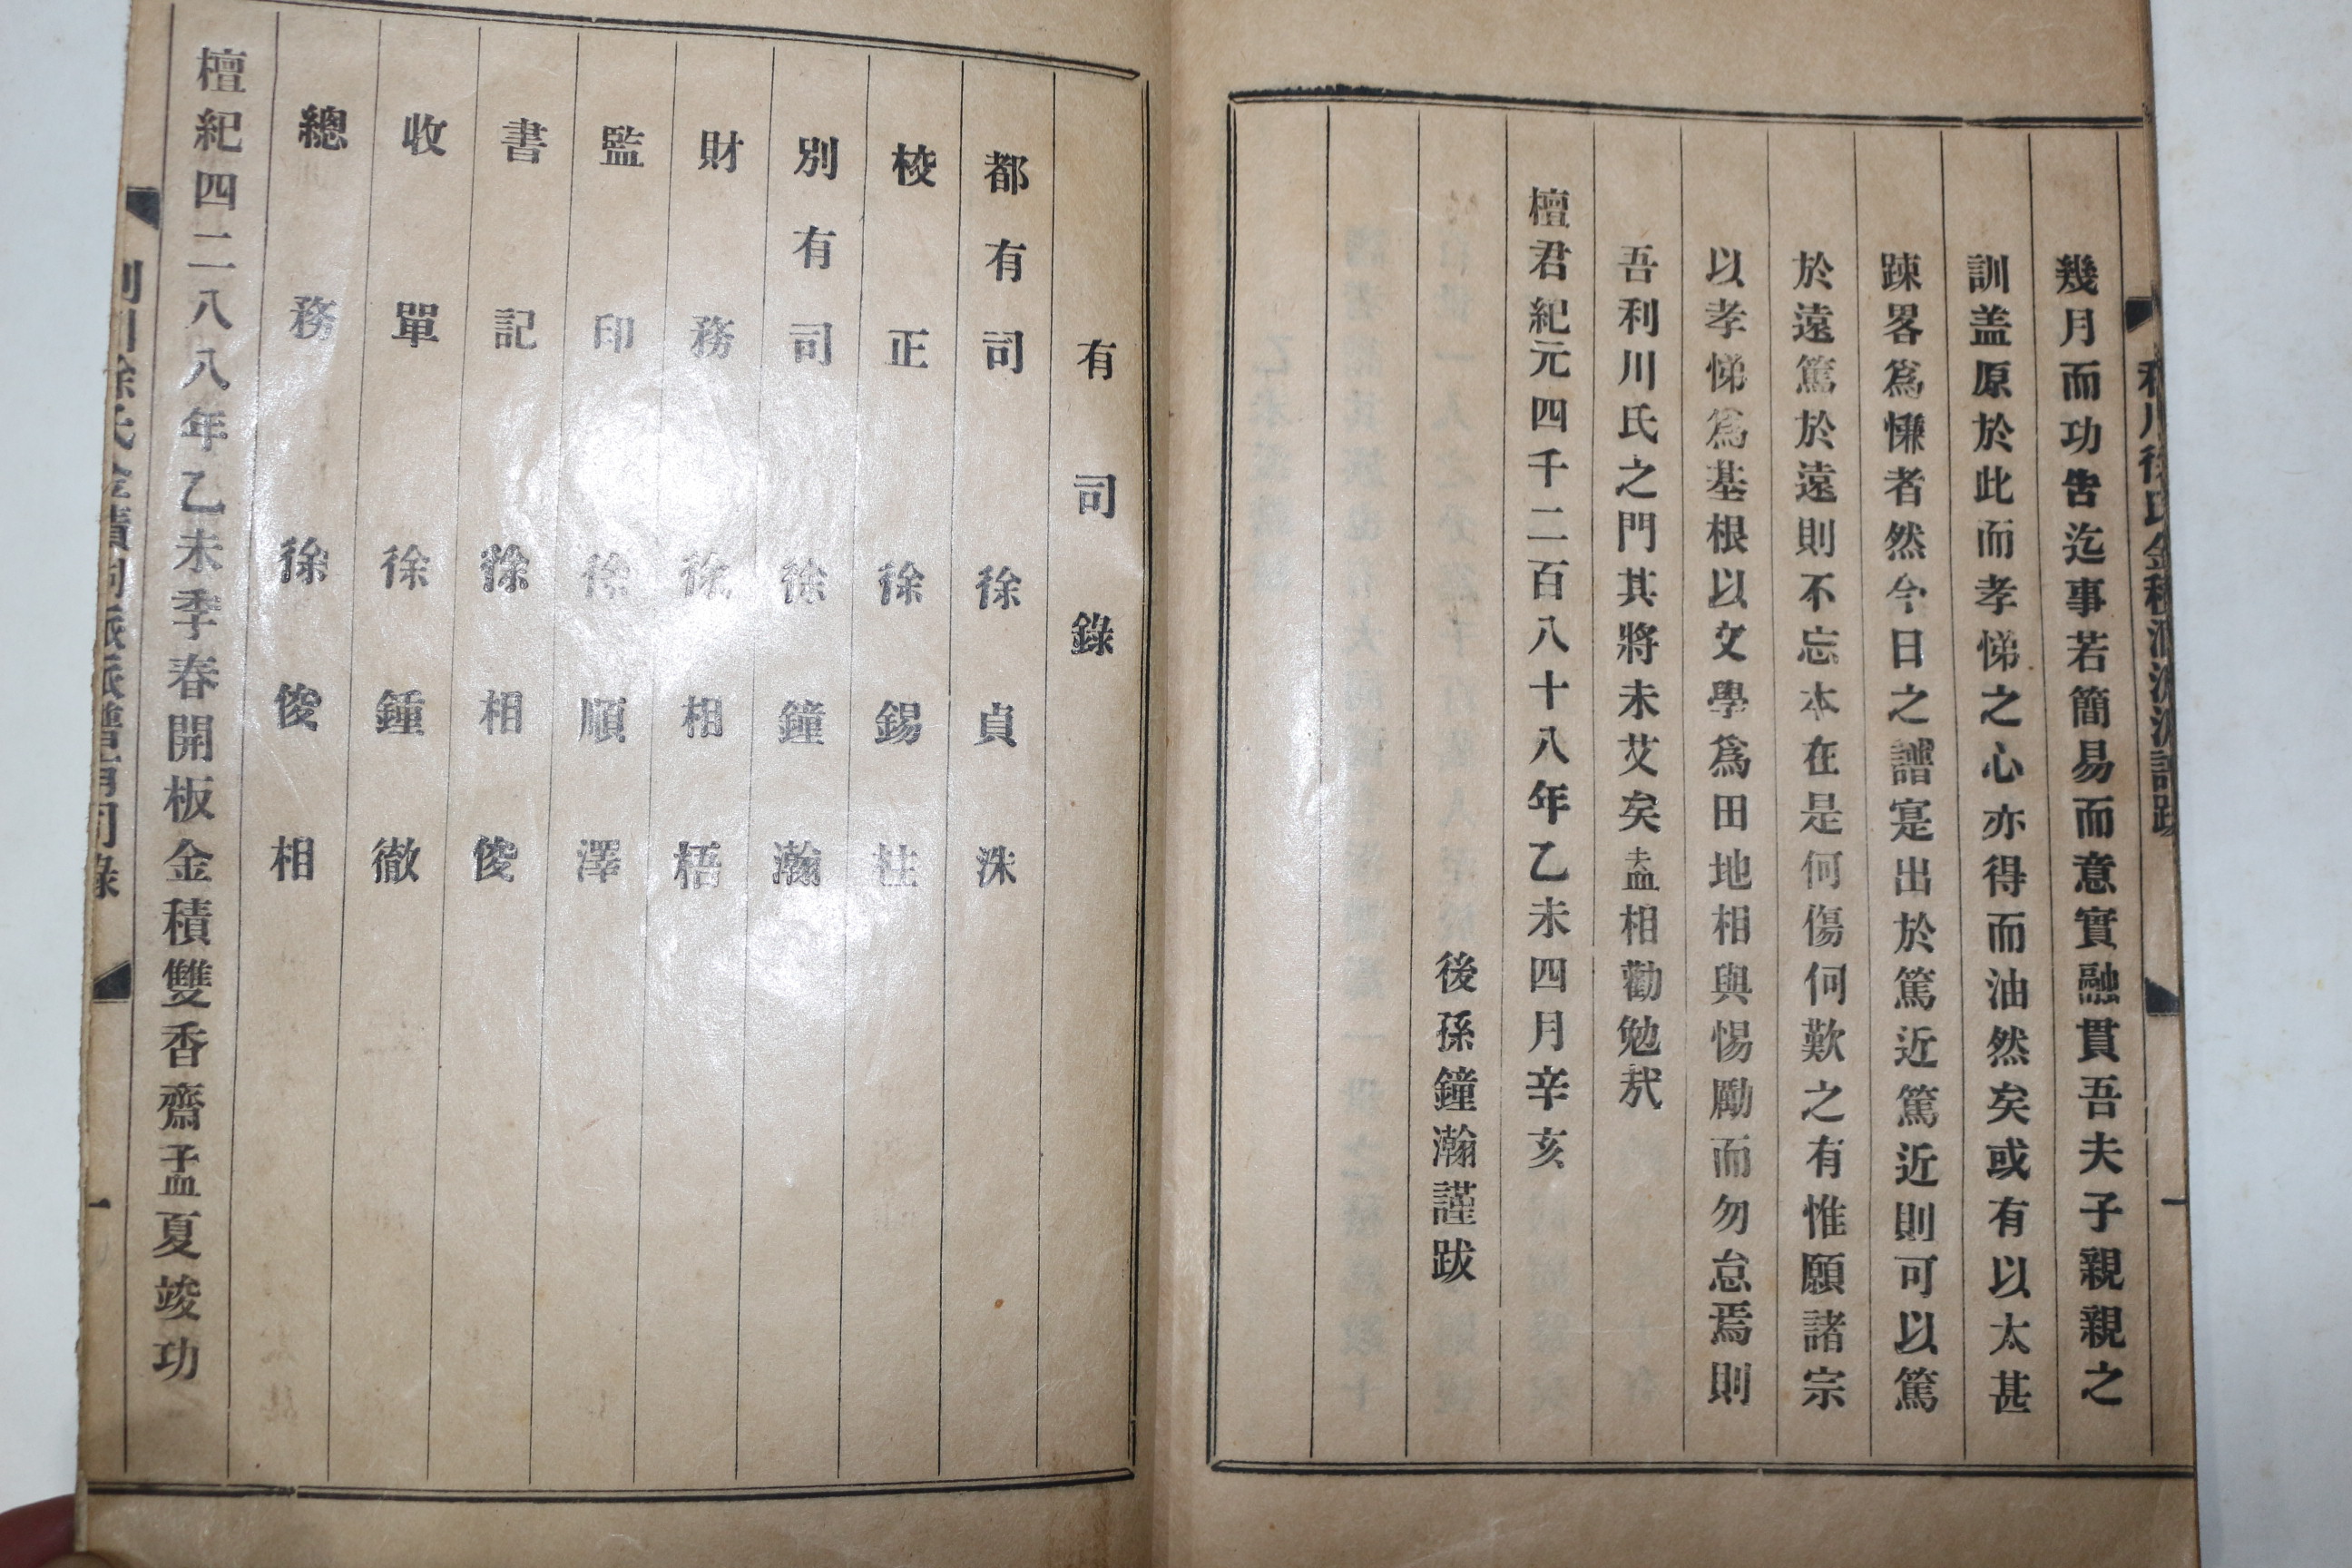 幾月而功告迄事若簡易而意實融貫吾夫子親親之
訓盖原於此而孝悌之心亦得而油然矣或有以太甚
踈畧爲慊者然今日之譜寔出於篤近篤近則可以篤
於遠篤於遠則不忘本在是何傷何歎之有惟願諸宗
以孝悌爲基根以文學爲田地相與惕勵而勿怠焉則
吾利川氏之門其將未艾矣盍相勸勉㢤
檀君紀元四千二百八十八年乙未四月辛亥
後孫鐘瀚謹跋
有司錄
都有司 徐貞洙
校正 徐錫柱
別有司 徐鐘瀚
財務 徐相梧
監印 徐順澤
書記 徐相俊
收單 徐鍾徹
總務 徐俊相
檀紀四二八八年乙未季春開板金積雙香齋孟夏竣功